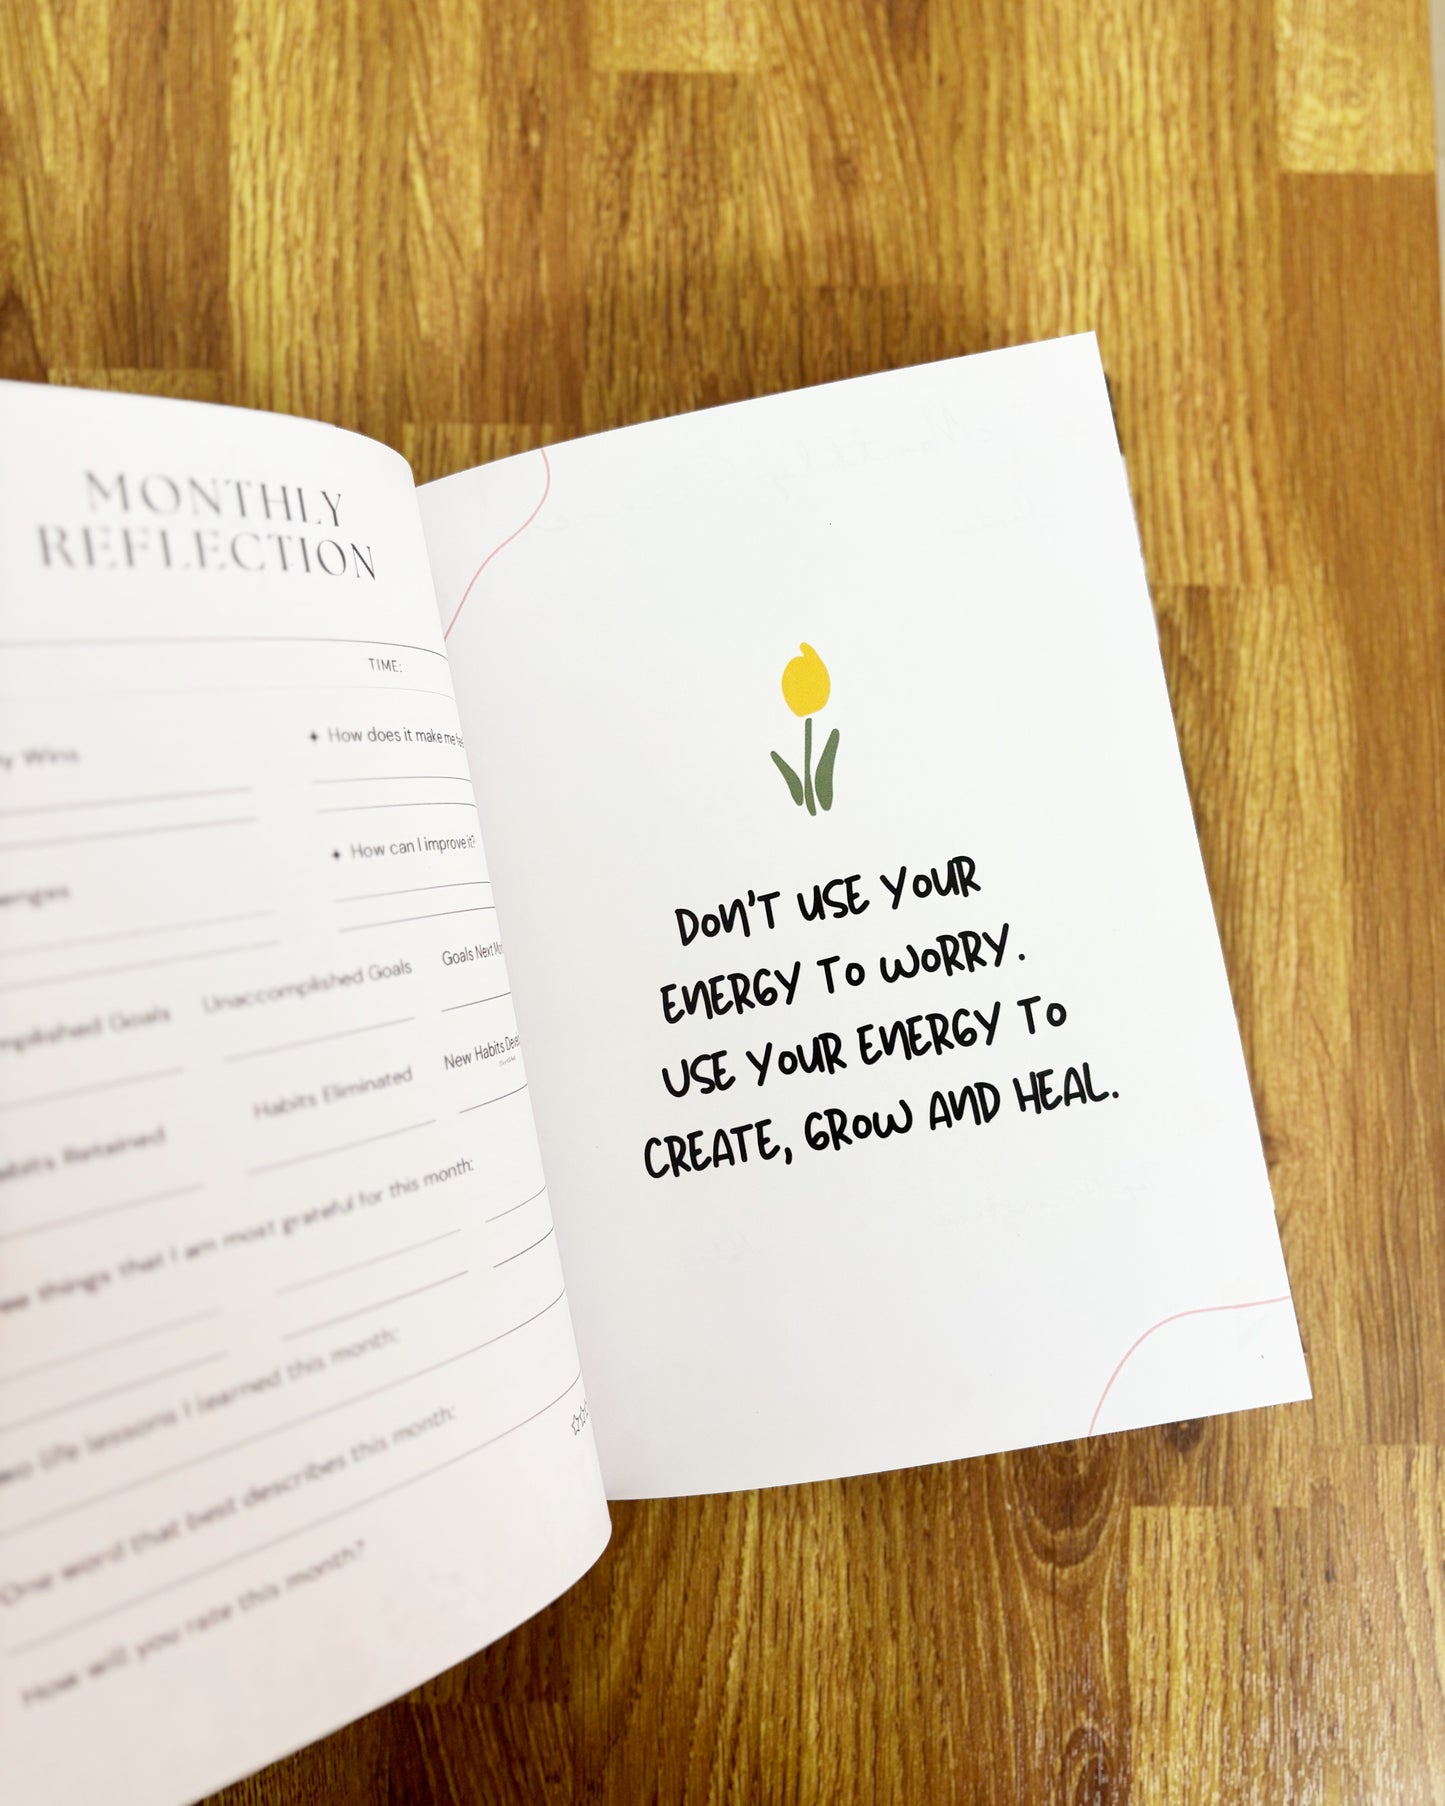 MONTHLY
REFLECTION
TIME:
Wins
How does it make me
How can I improve it?
Unaccomplished Goals
Goals Next
Goals
Habits Eliminated
New Habits
Retained
things that I am most grateful for this month:
life lessons I learned this month:
One word that best describes this month:
How will you rate this month?
DON'T USE YOUR
ENERGY TO WORRY.
USE YOUR ENERGY TO
CREATE, GROW AND HEAL.